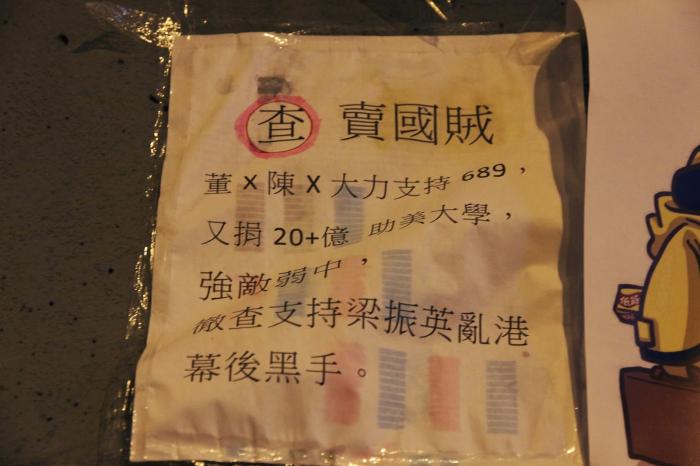 查 賣國賊
董X陳X大力支持689，
又捐20+億 助美大學，
強敵弱中，
徹查支持梁振英亂港
幕後黑手。